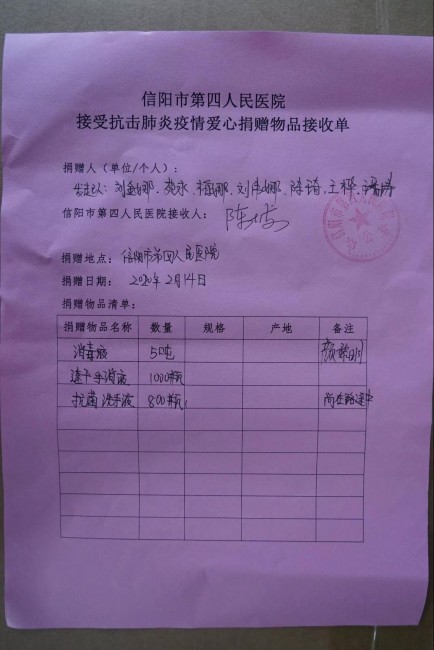 信阳市第四人民医院
接受抗击肺炎疫情爱心捐赠物品接收单
捐赠人（单位/个人）：
发起人：刘金娜、龚永、福娜、刘伟娜、陈锴、王桦、
信阳市第四人民医院接收人：
捐赠地点：信阳市第四人民医院
捐赠日期：2020年2月14日
捐赠物品清单：
捐赠物品名称 数量 规格 产地 备注
消毒液 5吨
速干手消液 1000瓶
抗菌洗手液 800瓶 尚在路途中